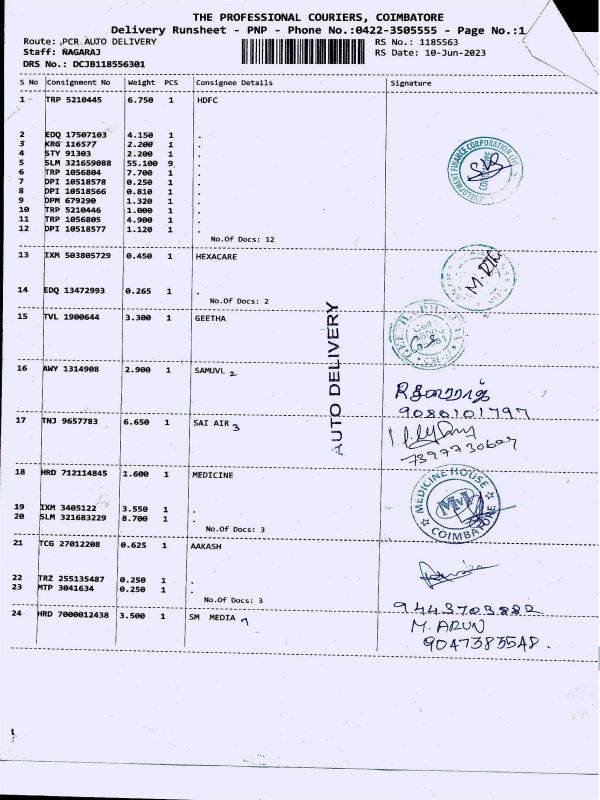 THE PROFESSIONAL COURIERS, COIMBATORE
Delivery Runsheet - PNP - Phone No.:0422-3505555 - Page No.:1
Route: PCR AUTO DELIVERY RS No.: 1185563
Staff: NAGARAJ RS Date: 10-Jun-2023
DRS No.: DCJB118556301
S No Consignment No Weight PCS Consignee Details Signature
1 TRP 5210445 6.750 1 HDFC
2 EDQ 17507103 4.150 1 .
3 KRG 116577 2.200 1 .
4 STY 91303 2.200 1 .
5 SLM 321659088 55.100 9 .
6 TRP 1056804 7.700 1 .
7 DPI 10518578 0.250 1 .
8 DPI 10518566 0.810 1 .
9 DPM 679290 1.320 1 .
10 TRP 5210446 1.000 1 .
11 TRP 1056805 4.900 1 .
12 DPI 10518577 1.120 1 .
No.Of Docs: 12
13 IXM 503805729 0.450 1 HEXACARE
14 EDQ 13472993 0.265 1 .
No.Of Docs: 2
15 TVL 1900644 3.300 1 GEETHA
AUTO DELIVERY
16 AWY 1314908 2.900 1 SAMUVL 2
9080101797
17 TNJ 9657783 6.650 1 SAI AIR 3
7397730607
18 HRD 712114845 1.600 1 MEDICINE
MEDICINE HOUSE
COIMBATORE
19 IXM 3405122 3.550 1 .
20 SLM 321683229 8.700 1 .
No.Of Docs: 3
21 TCG 27012208 0.625 1 AAKASH
22 TRZ 255135487 0.250 1 .
23 MTP 3041634 0.250 1 .
No.Of Docs: 3
9443703882
24 HRD 7000012438 3.500 1 SM MEDIA
M. ARUN
9047383548.